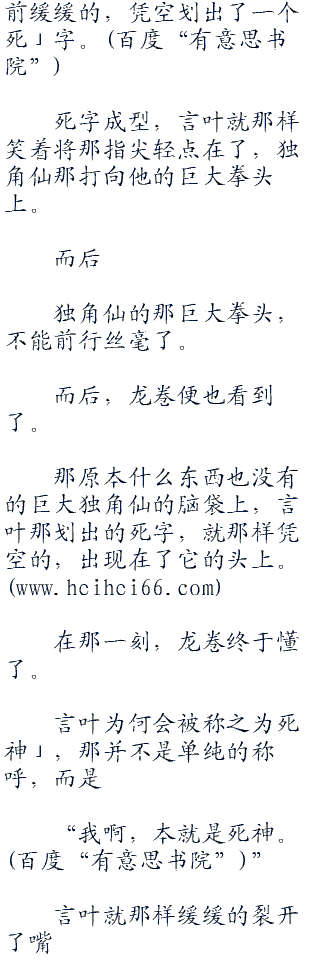 前缓缓的，凭空划出了一个
死」字。(百度“有意思书
院”)
死字成型，言叶就那样
笑着将那指尖轻点在了，独
角仙那打向他的巨大拳头
上。
而后
独角仙的那巨大拳头，
不能前行丝毫了。
而后，龙卷便也看到
了。
那原本什么东西也没有
的巨大独角仙的脑袋上，言
叶那划出的死字，就那样凭
空的，出现在了它的头上。
(www.hcihci66.com)
在那一刻，龙卷终于懂
了。
言叶为何会被称之为死
神」，那并不是单纯的称
呼，而是
“我啊，本就是死神。
(百度“有意思书院”)”
言叶就那样缓缓的裂开
了嘴